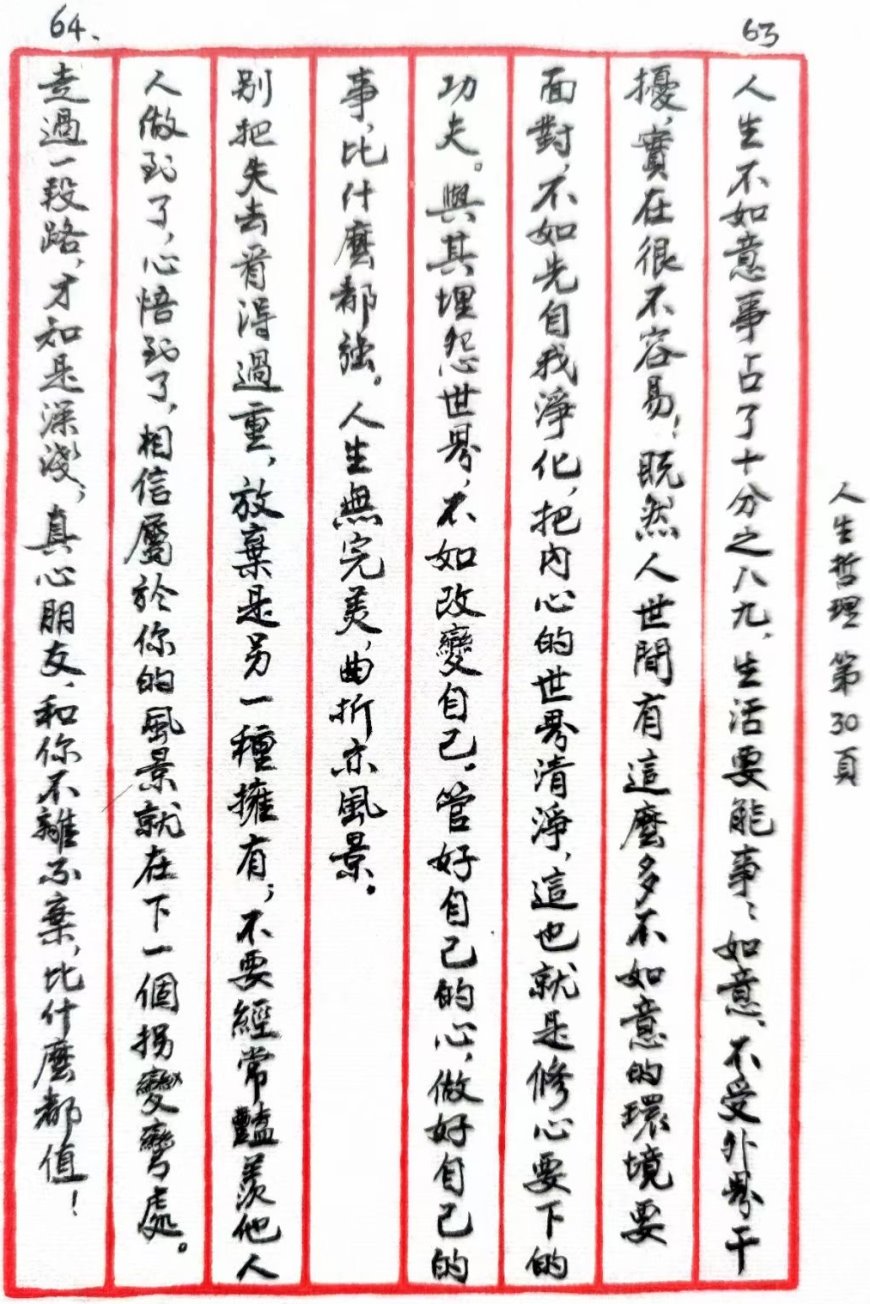 人生哲理 第30頁
63
人生不如意事占了十分之八九，生活要能事﹕如意，不受外界干
擾，實在很不容易！既然人世間有這麼多不如意的環境要
面對，不如先自我淨化，把內心的世界清淨，這也就是修心要下的
功夫。與其埋怨世界，不如改變自己，管好自己的心，做好自己的
事，比什麼都強。人生無完美，曲折亦風景。
別把失去看得過重，放棄是另一種擁有；不要經常豔羨他人
人做到了，心悟到了，相信屬於你的風景就在下一個拐變彎處。
64.
走過一段路，才知是深淺；真心朋友，和你不離不棄，比什麼都值！